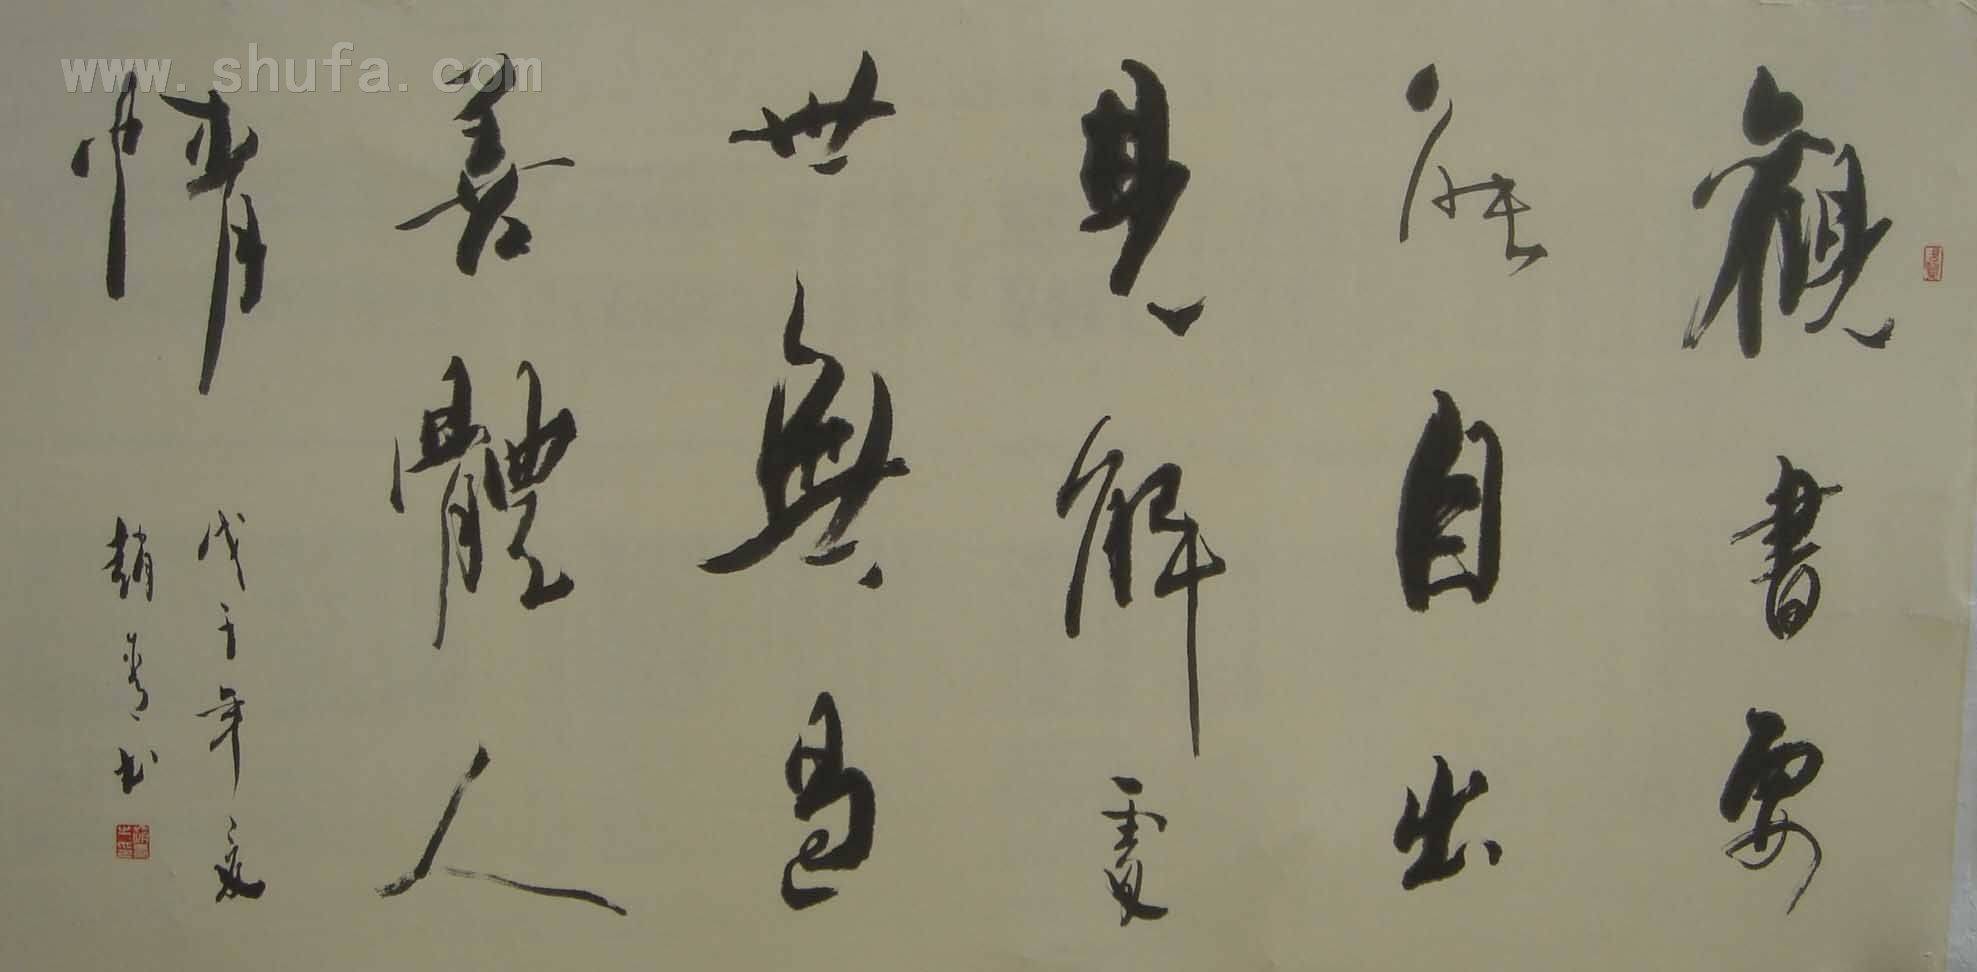 www.shufa.com
觀書要
能自出
見解處
世無過
善體人
情
戊子年夏
趙書